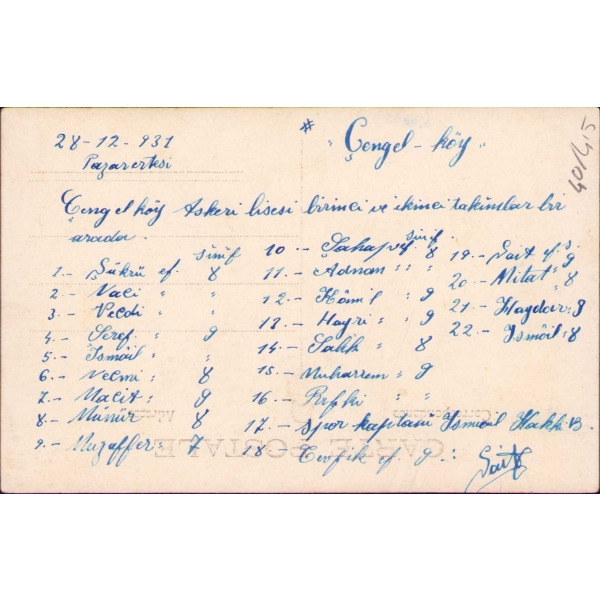 28-12-931
Pazarertesi
* "Çengel-köy"
40/45
Çengelköy Askeri lisesi birinci ve ikinci takımlar bir
arada.
sinif
1.- Şükrü ef. 8
2.- Naci " "
3.- Vecdi " "
4.- Şeref " 9
5.- İsmâil " "
6.- Necmi " 8
7.- Macit " 9
8.- Münür " 8
9.- Muzaffer " 7
sinif.
10.- Şahap ef. 8
11.- Adnan " "
12.- Kâmil " 9
13.- Hayri " 9
14.- Sakk " 8
15.- Muharrem " 9
16.- Refki " "
17.- spor kaptanı İsmail Hakkı B.
18 Tevfik ef 9 ":
s.
19.- Sait ef. 9
20.- Mitat " 8
21.- Haydar " 9
22.- İsmâil " 8
Sait
CARTE POSTALE